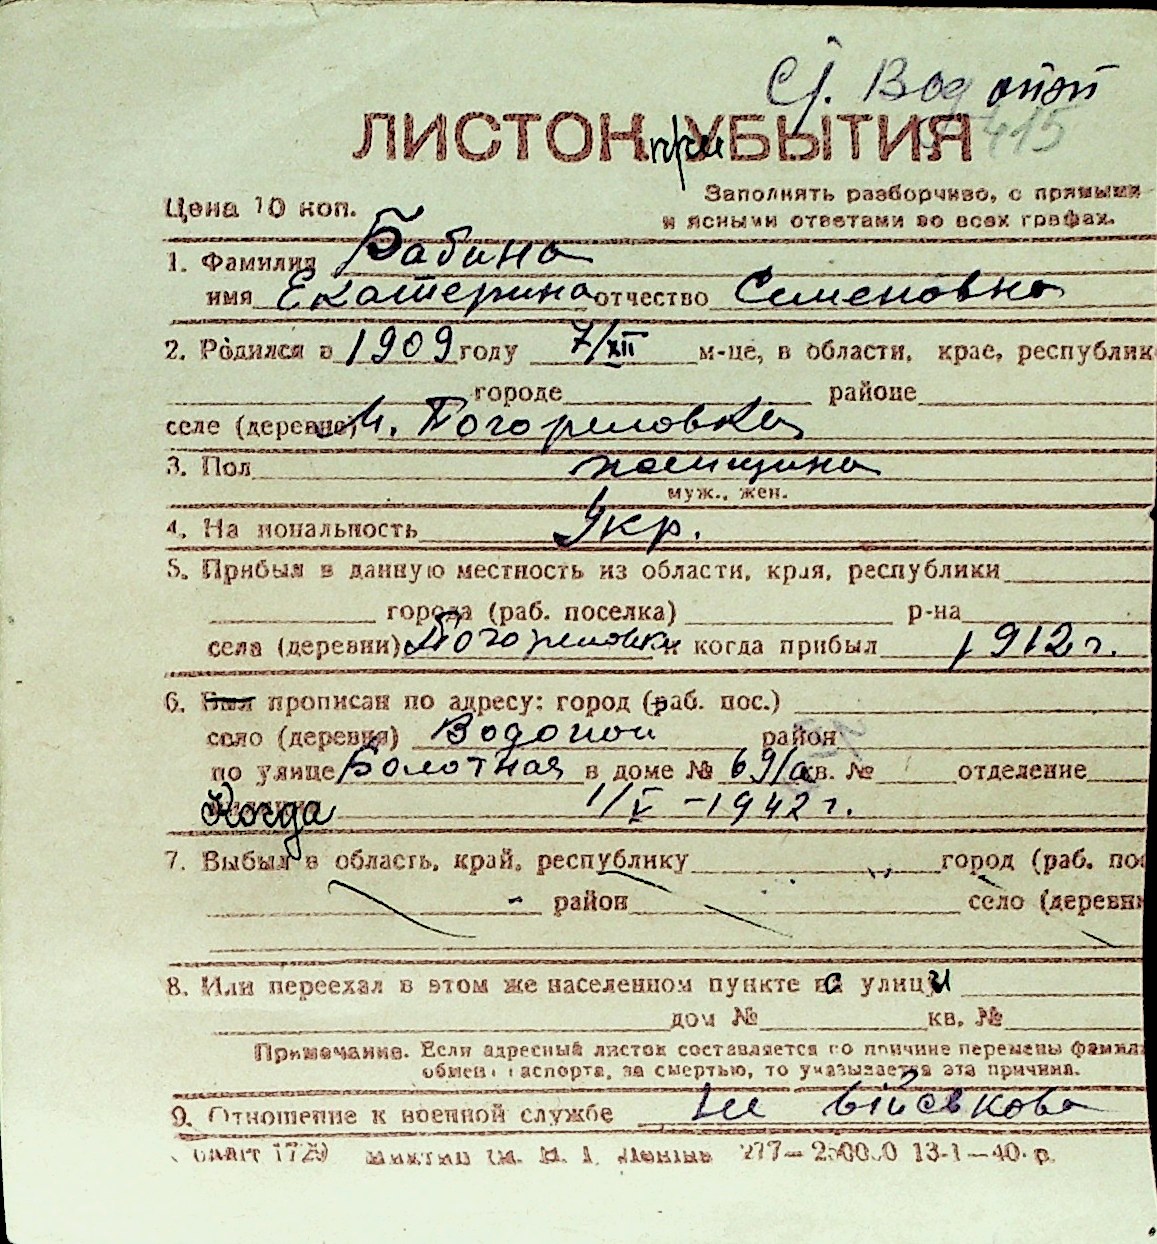 Водопой
415
ЛИСТОК при УБЫТИЯ
Цена 10 коп.
Заполнять разборчиво, с прямыми
и ясными ответами во всех графах.
1. Фамилия Бабина
имя Екатерина отчество Семеновна
2. Родился в 1909 году 7/XII м-це, в области, крае, республик
городе районе
селе (деревне) М. Погореловка
3. Пол женщина
муж., жен.
4. Национальность Укр.
5. Прибыл в данную местность из области, края, республики
города (раб. поселка) р-на
села (деревни) Погореловки и когда прибыл 1912 г.
6. Был прописан по адресу: город (раб. пос.)
село (деревня) Водопой район
по улице Болотная в доме № 69/а кв. № отделение
Когда 1/V - 1942 г.
7. Выбыл в область, край, республику город (раб. пос
район село (деревн
8. Или переехал в этом же населенном пункте с улицы
дом № кв. №
Примечание. Если адресный листок составляется по причине перемены фамил
обмена паспорта, за смертью, то указывается эта причина.
9. Отношение к военной службе не військова
1729 им. Леніна 277— 13-1—40 р.